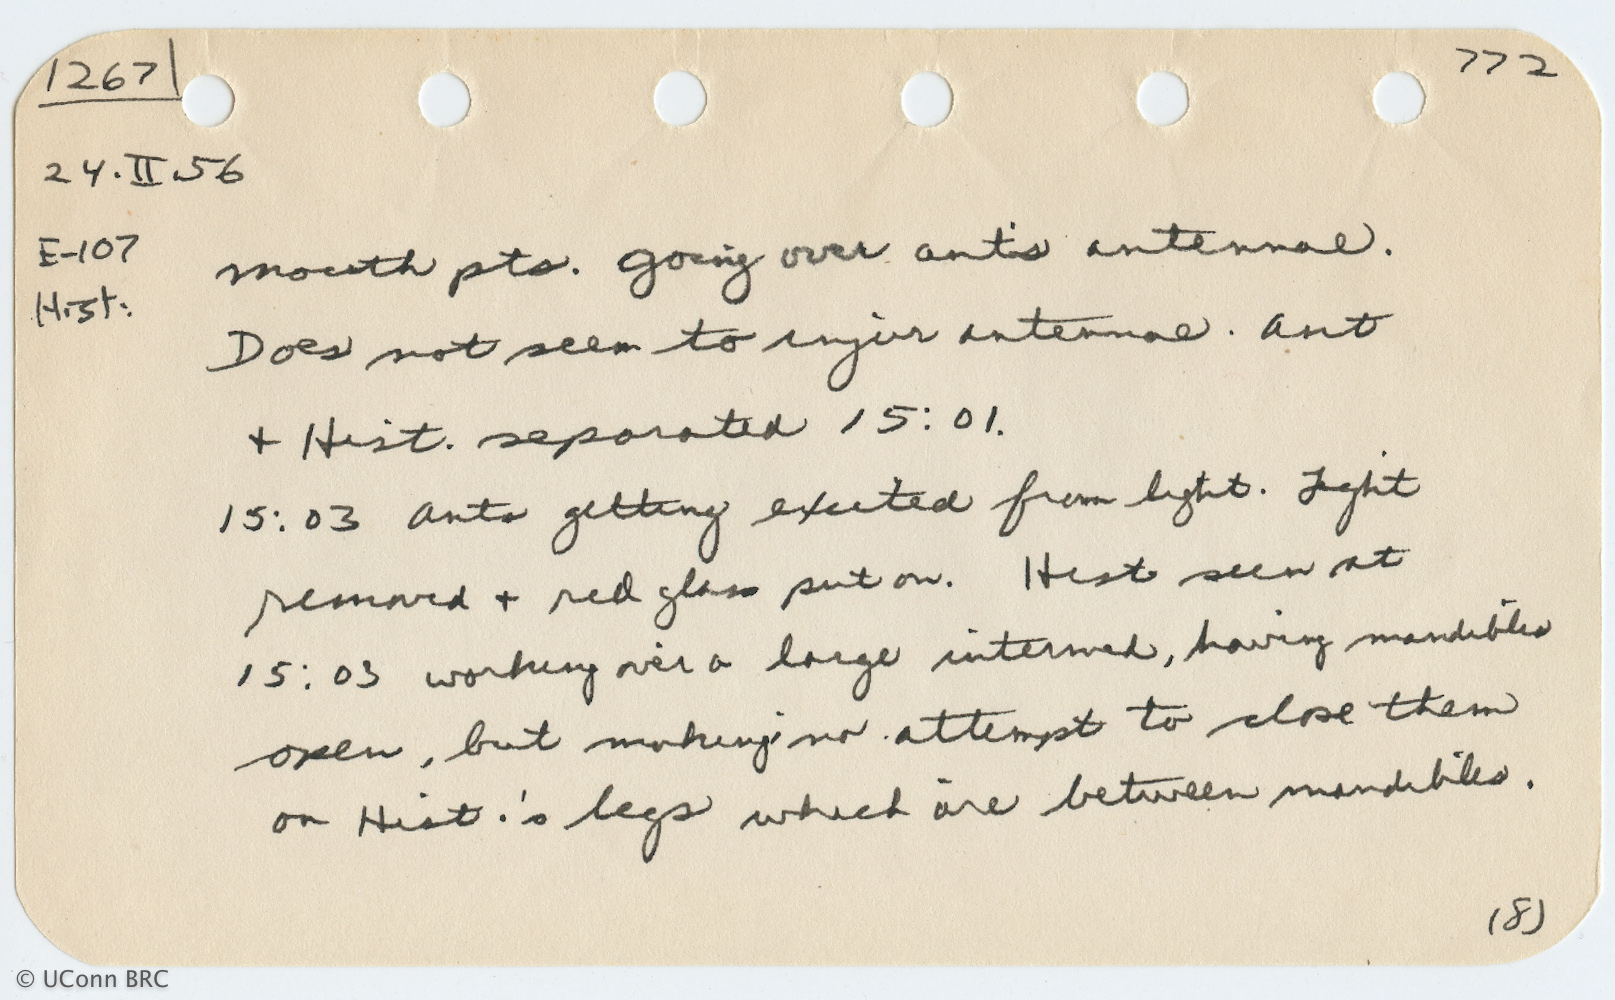 1267
772
24.II.56
E-107
Hist.
mouth pts. going over ant's antennae.
Does not seem to injur antennae. Ant
+ Hist. separated 15:01.
15:03 Ants getting excited from light. Light
removed + red glass put on. Hist seen at
15:03 working over a large intermed, having mandibles
open, but making no attempt to close them
on Hist.'s legs which are between mandibles.
(8)
© UConn BRC